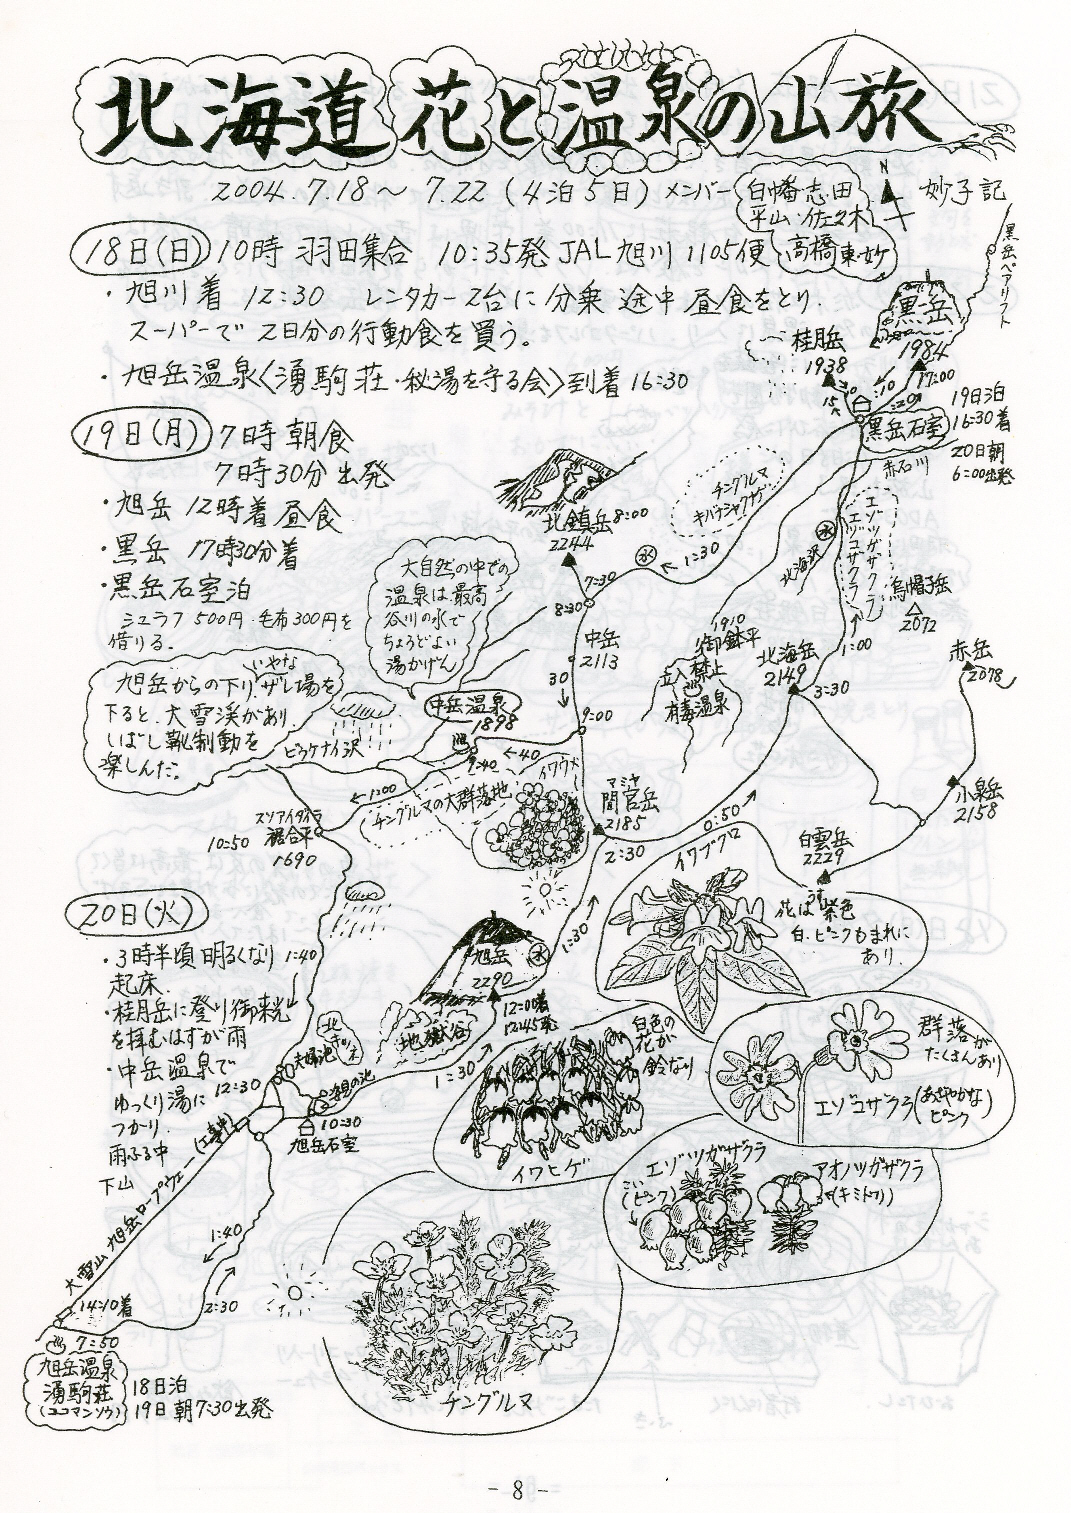 北海道花と温泉の山旅
2004.7.18～7.22（4泊5日）メンバー
白幡・志・田
平山・佐々木
高橋東・妙
N
妙子記
18日(日) 10時 羽田集合 10:35発 JAL旭川 1105便
・旭川着 12:30 レンタカー2台に分乗 途中 昼食をとり、
スーパーで 2日分の行動食を買う。
・旭岳温泉〈湧駒荘・秘湯を守る会〉到着 16:30
19日(月) 7時 朝食
7時30分 出発
・旭岳 12時着 昼食
・黒岳 17時30分着
・黒岳石室泊
シュラフ 500円・毛布300円を
借りる。
黒岳ペアリフト
黒岳
1984
17:00
桂月岳
1938
黒岳石室
19日泊
16:30着
20日朝
6:00出発
赤石川
チングルマ
キバナシャクナゲ
エゾツガザクラ
エゾコザクラ
北海沢
水
烏帽子岳
2072
赤岳
2078
北鎮岳 8:00
2244
水
1:30
7:30
8:30
中岳
2113
30
9:00
大自然の中での
温泉は最高
谷川の水で
ちょうどよい
湯かげん
中岳温泉
1898
9:40
←40
旭岳からの下り、いやなザレ場を
下ると、大雪渓があり、
しばし靴制動を
楽しんだ。
ピウケナイ沢
1:00
チングルマの大群落地
イワウメ
1910
御鉢平
立入禁止
有毒温泉
北海岳
2149
3:30
1:00
マミヤ
間宮岳
2185
2:30
0:50
小泉岳
2158
白雲岳
2229
スソアイダイラ
裾合平
1690
10:50
20日(火)
・3時半頃 明るくなり
起床。
・桂月岳に登り御来光
を拝むはずが雨
・中岳温泉で
ゆっくり湯に
つかり、
雨ふる中
下山
1:40
12:30
旭岳
2290
水
1:30
12:00着
12:45発
地獄谷
1:30
夫婦池
北キツネ
10:30
旭岳石室
イワブクロ
花はうす紫色
白・ピンクもまれに
あり.
白色の
花が
鈴なり
イワヒゲ
群落が
たくさんあり
エゾコザクラ(あざやかな
ピンク)
エゾツガザクラ
(こいピンク)
アオノツガザクラ
(キミドリ)
チングルマ
大雪山 旭岳ロープウェー(工事中)
1:40
2:30
14:10着
7:50
旭岳温泉
湧駒荘
(ユコマンソウ)
18日泊
19日 朝7:30出発
- 8 -